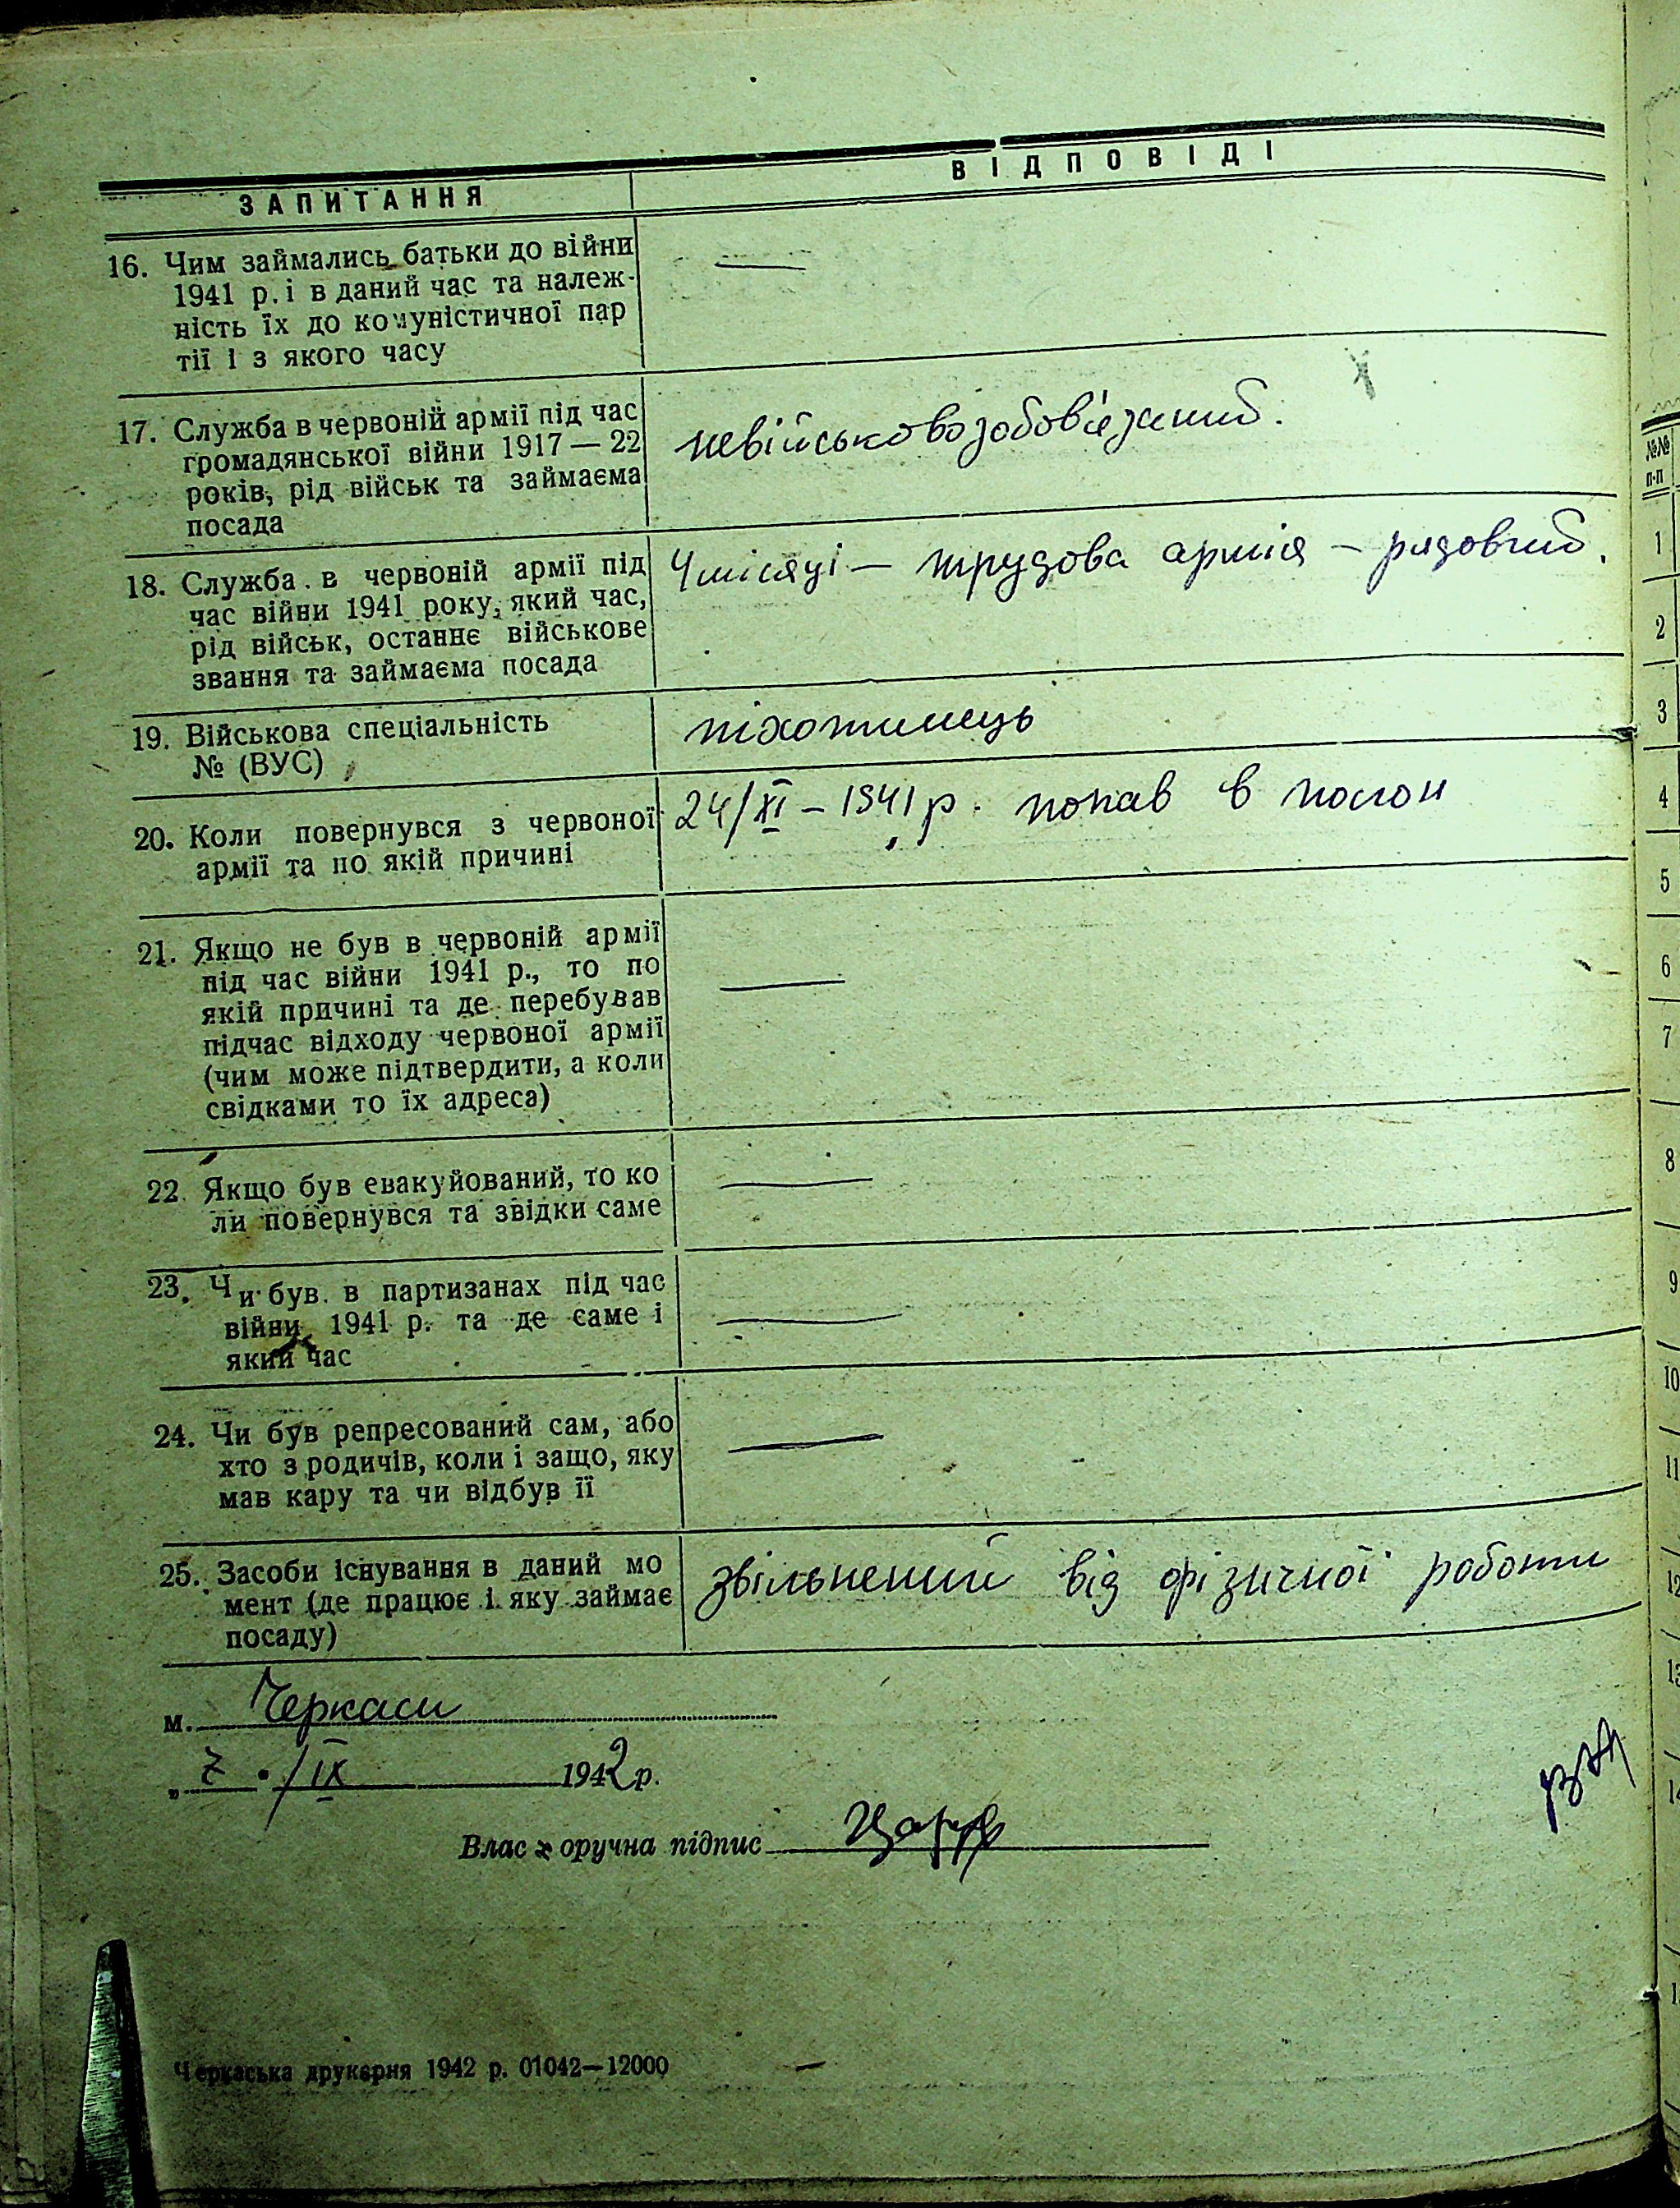 ЗАПИТАННЯ
ВІДПОВІДІ
16. Чим займались батьки до війни
1941 р. і в даний час та належ-
ність їх до комуністичної пар
тії і з якого часу
—
17. Служба в червоній армії під час
громадянської війни 1917 — 22
років, рід військ та займаєма
посада
невійськовозобов'язаний.
18. Служба в червоній армії під
час війни 1941 року, який час,
рід військ, останнє військове
звання та займаєма посада
4 місяці — трудова армія — рядовий.
19. Військова спеціальність
№ (ВУС)
піхотинець
20. Коли повернувся з червоної
армії та по якій причині
24/XI – 1941 р. попав в полон
21. Якщо не був в червоній армії
під час війни 1941 р., то по
якій причині та де перебував
підчас відходу червоної армії
(чим може підтвердити, а коли
свідками то їх адреса)
—
22. Якщо був евакуйований, то ко
ли повернувся та звідки саме
—
23. Чи був в партизанах під час
війни 1941 р. та де саме і
який час
—
24. Чи був репресований сам, або
хто з родичів, коли і защо, яку
мав кару та чи відбув її
—
25. Засоби існування в даний мо
мент (де працює і яку займає
посаду)
звільнений від фізичної роботи
м. Черкаси
„ 7 • /IX 1942 р.
Власноручна підпис
Черкаська друкарня 1942 р. 01042—12000
№№
п-п
1
2
3
4
5
6
7
8
9
10
11
12
13
14